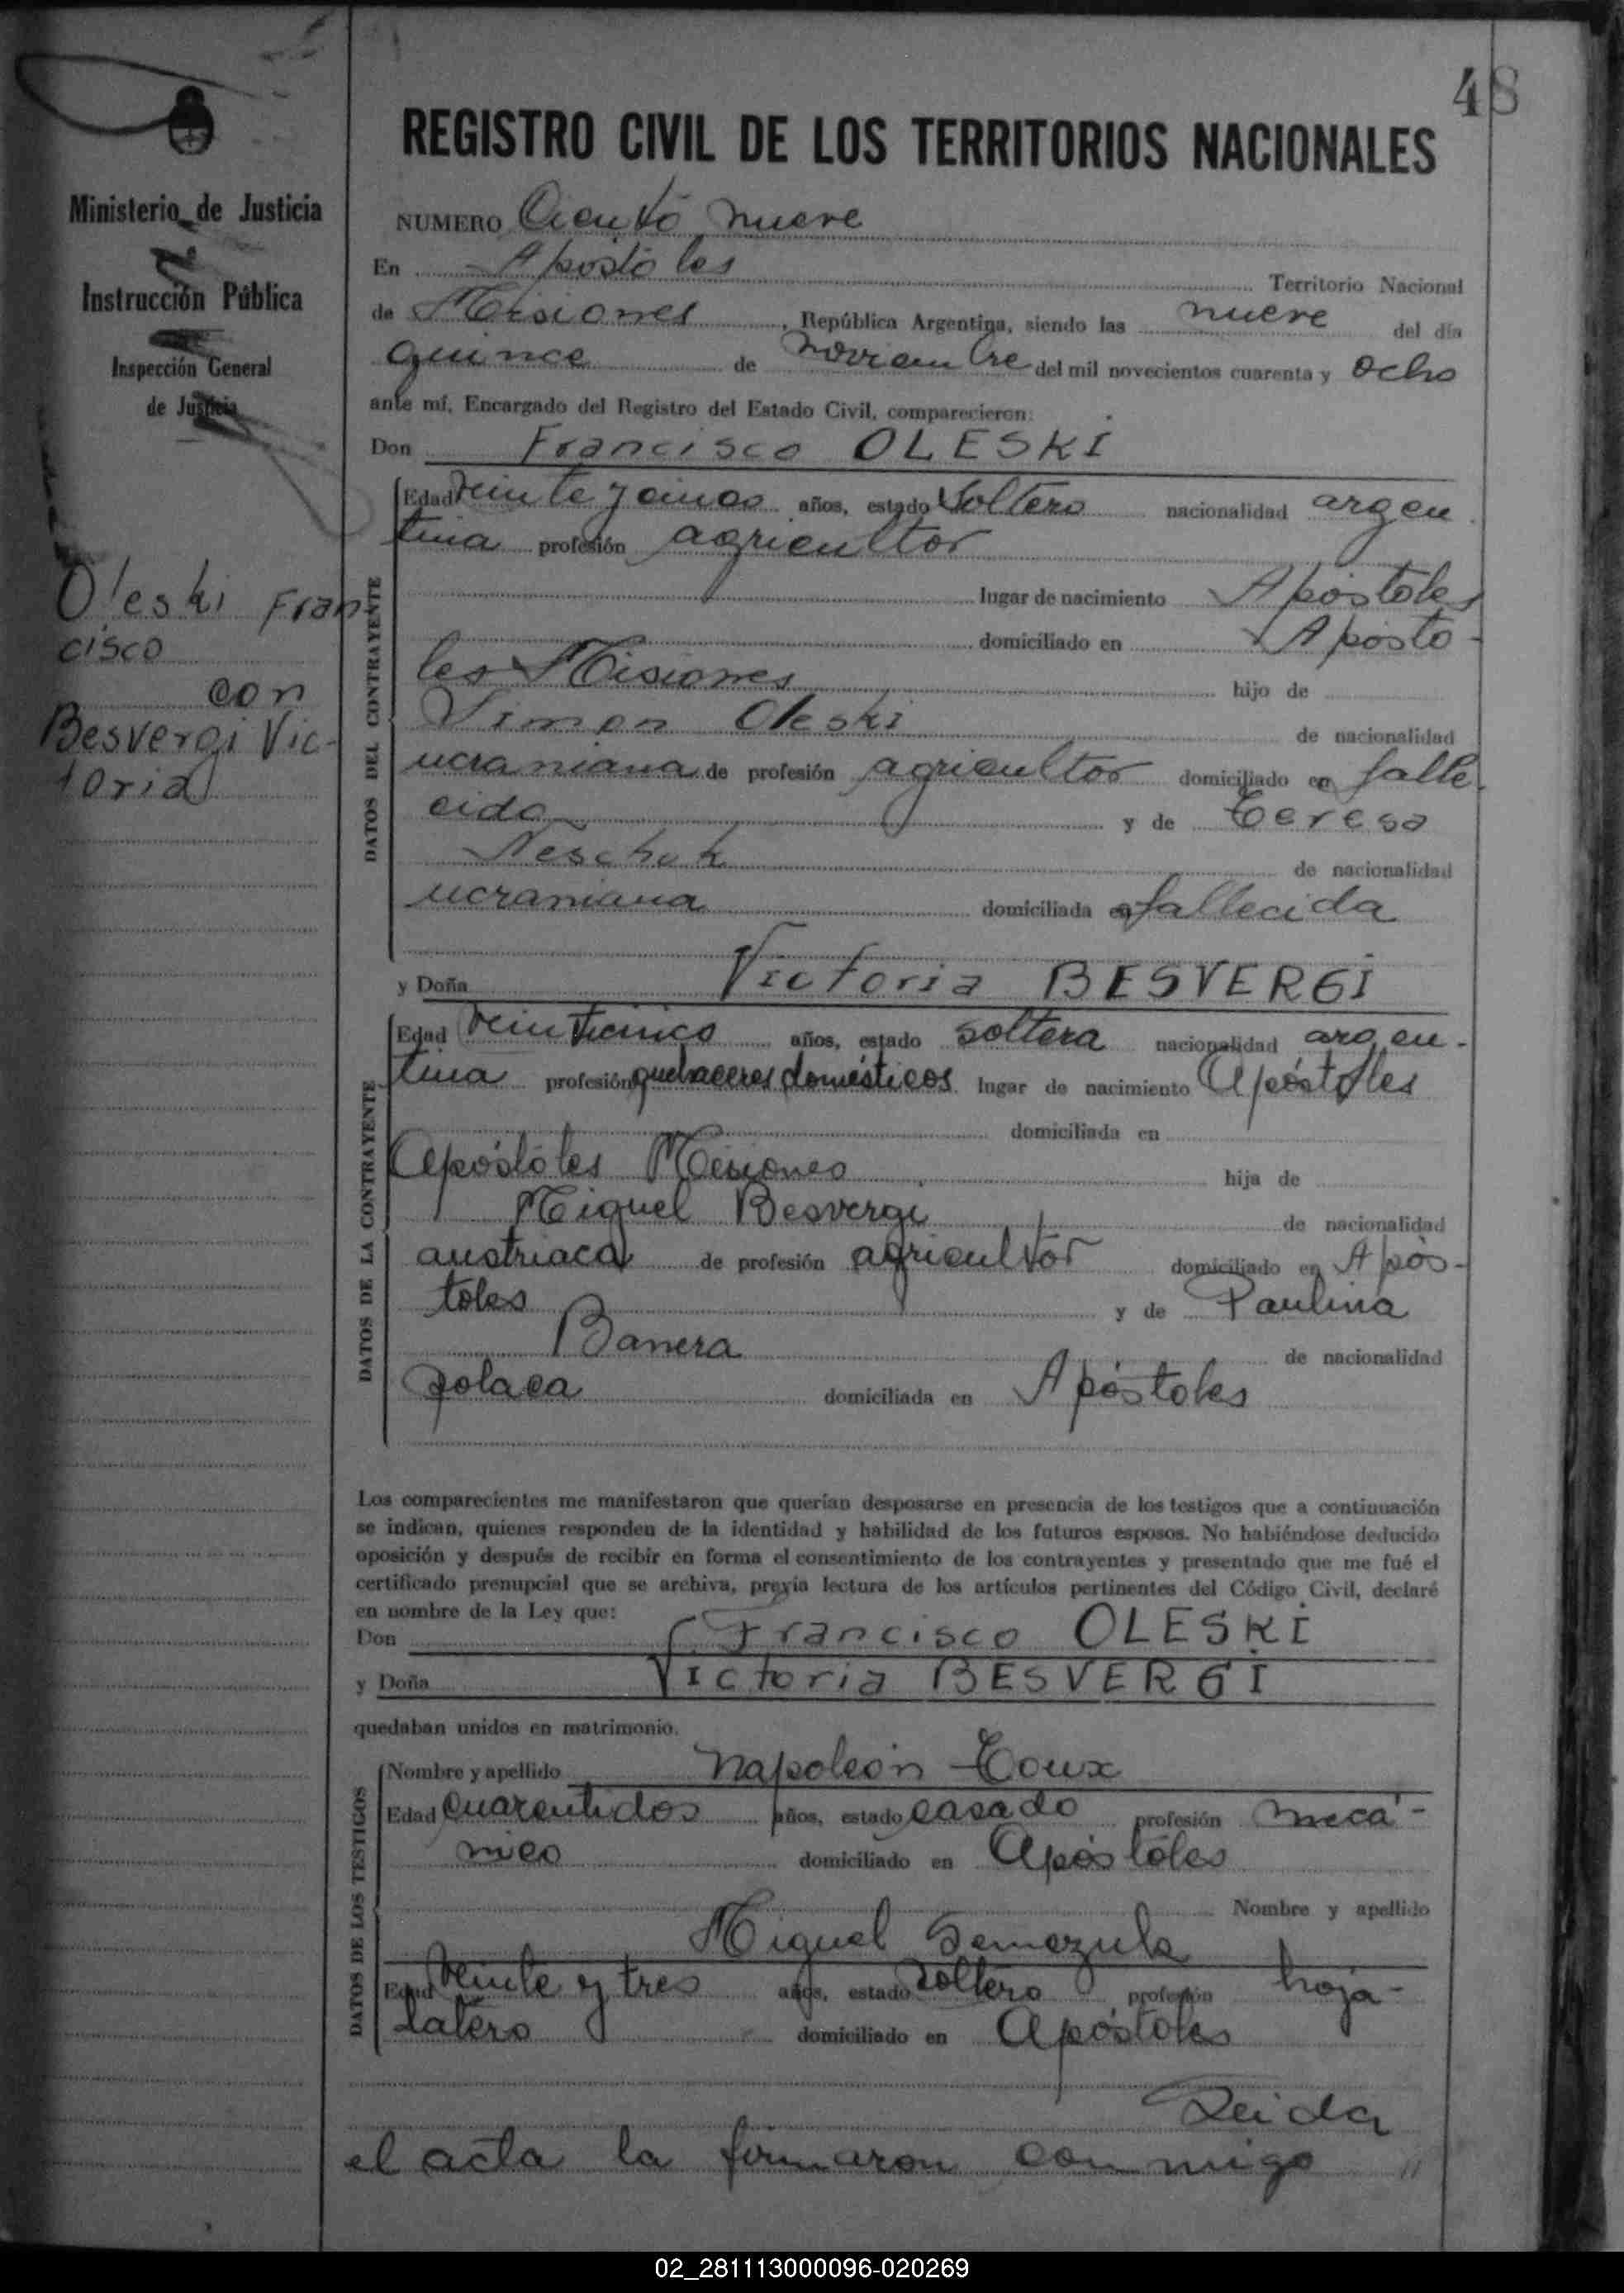 48
REGISTRO CIVIL DE LOS TERRITORIOS NACIONALES
Ministerio de Justicia
Instrucción Pública
Inspección General
de Justicia
Oleski Fran
cisco
con
Besvergi Vic-
toria
NUMERO Ciento nueve
En Apóstoles Territorio Nacional
de Misiones, República Argentina, siendo las nueve del día
quince de noviembre del mil novecientos cuarenta y ocho
ante mí, Encargado del Registro del Estado Civil, comparecieron:
Don Francisco OLESKI
DATOS DEL CONTRAYENTE
Edad veinte y cinco años, estado soltero nacionalidad argen
tina profesión agricultor
lugar de nacimiento Apóstoles
domiciliado en Apósto-
les Misiones hijo de
Simon Oleski de nacionalidad
ucraniana de profesión agricultor domiciliado en falle-
cido y de Teresa
Neschuk de nacionalidad
ucraniana domiciliada en fallecida
y Doña Victoria BESVERGI
DATOS DE LA CONTRAYENTE
Edad veinticinco años, estado soltera nacionalidad argen-
tina profesión quehaceres domésticos lugar de nacimiento Apóstoles
domiciliada en
Apóstoles Misiones hija de
Miguel Besvergi de nacionalidad
austriaca de profesión agricultor domiciliado en Após-
toles y de Paulina
Banera de nacionalidad
polaca domiciliada en Apóstoles
Los comparecientes me manifestaron que querían desposarse en presencia de los testigos que a continuación
se indican, quienes responden de la identidad y habilidad de los futuros esposos. No habiéndose deducido
oposición y después de recibir en forma el consentimiento de los contrayentes y presentado que me fué el
certificado prenupcial que se archiva, previa lectura de los artículos pertinentes del Código Civil, declaré
en nombre de la Ley que:
Don Francisco OLESKI
y Doña Victoria BESVERGI
quedaban unidos en matrimonio.
DATOS DE LOS TESTIGOS
Nombre y apellido Napoleón Toux
Edad cuarentidos años, estado casado profesión mecá-
nico domiciliado en Apóstoles
Nombre y apellido
Miguel Semezuk
Edad veinte y tres años, estado soltero profesión hoja-
latero domiciliado en Apóstoles
Leida
el acta la firmaron conmigo "
02_281113000096-020269